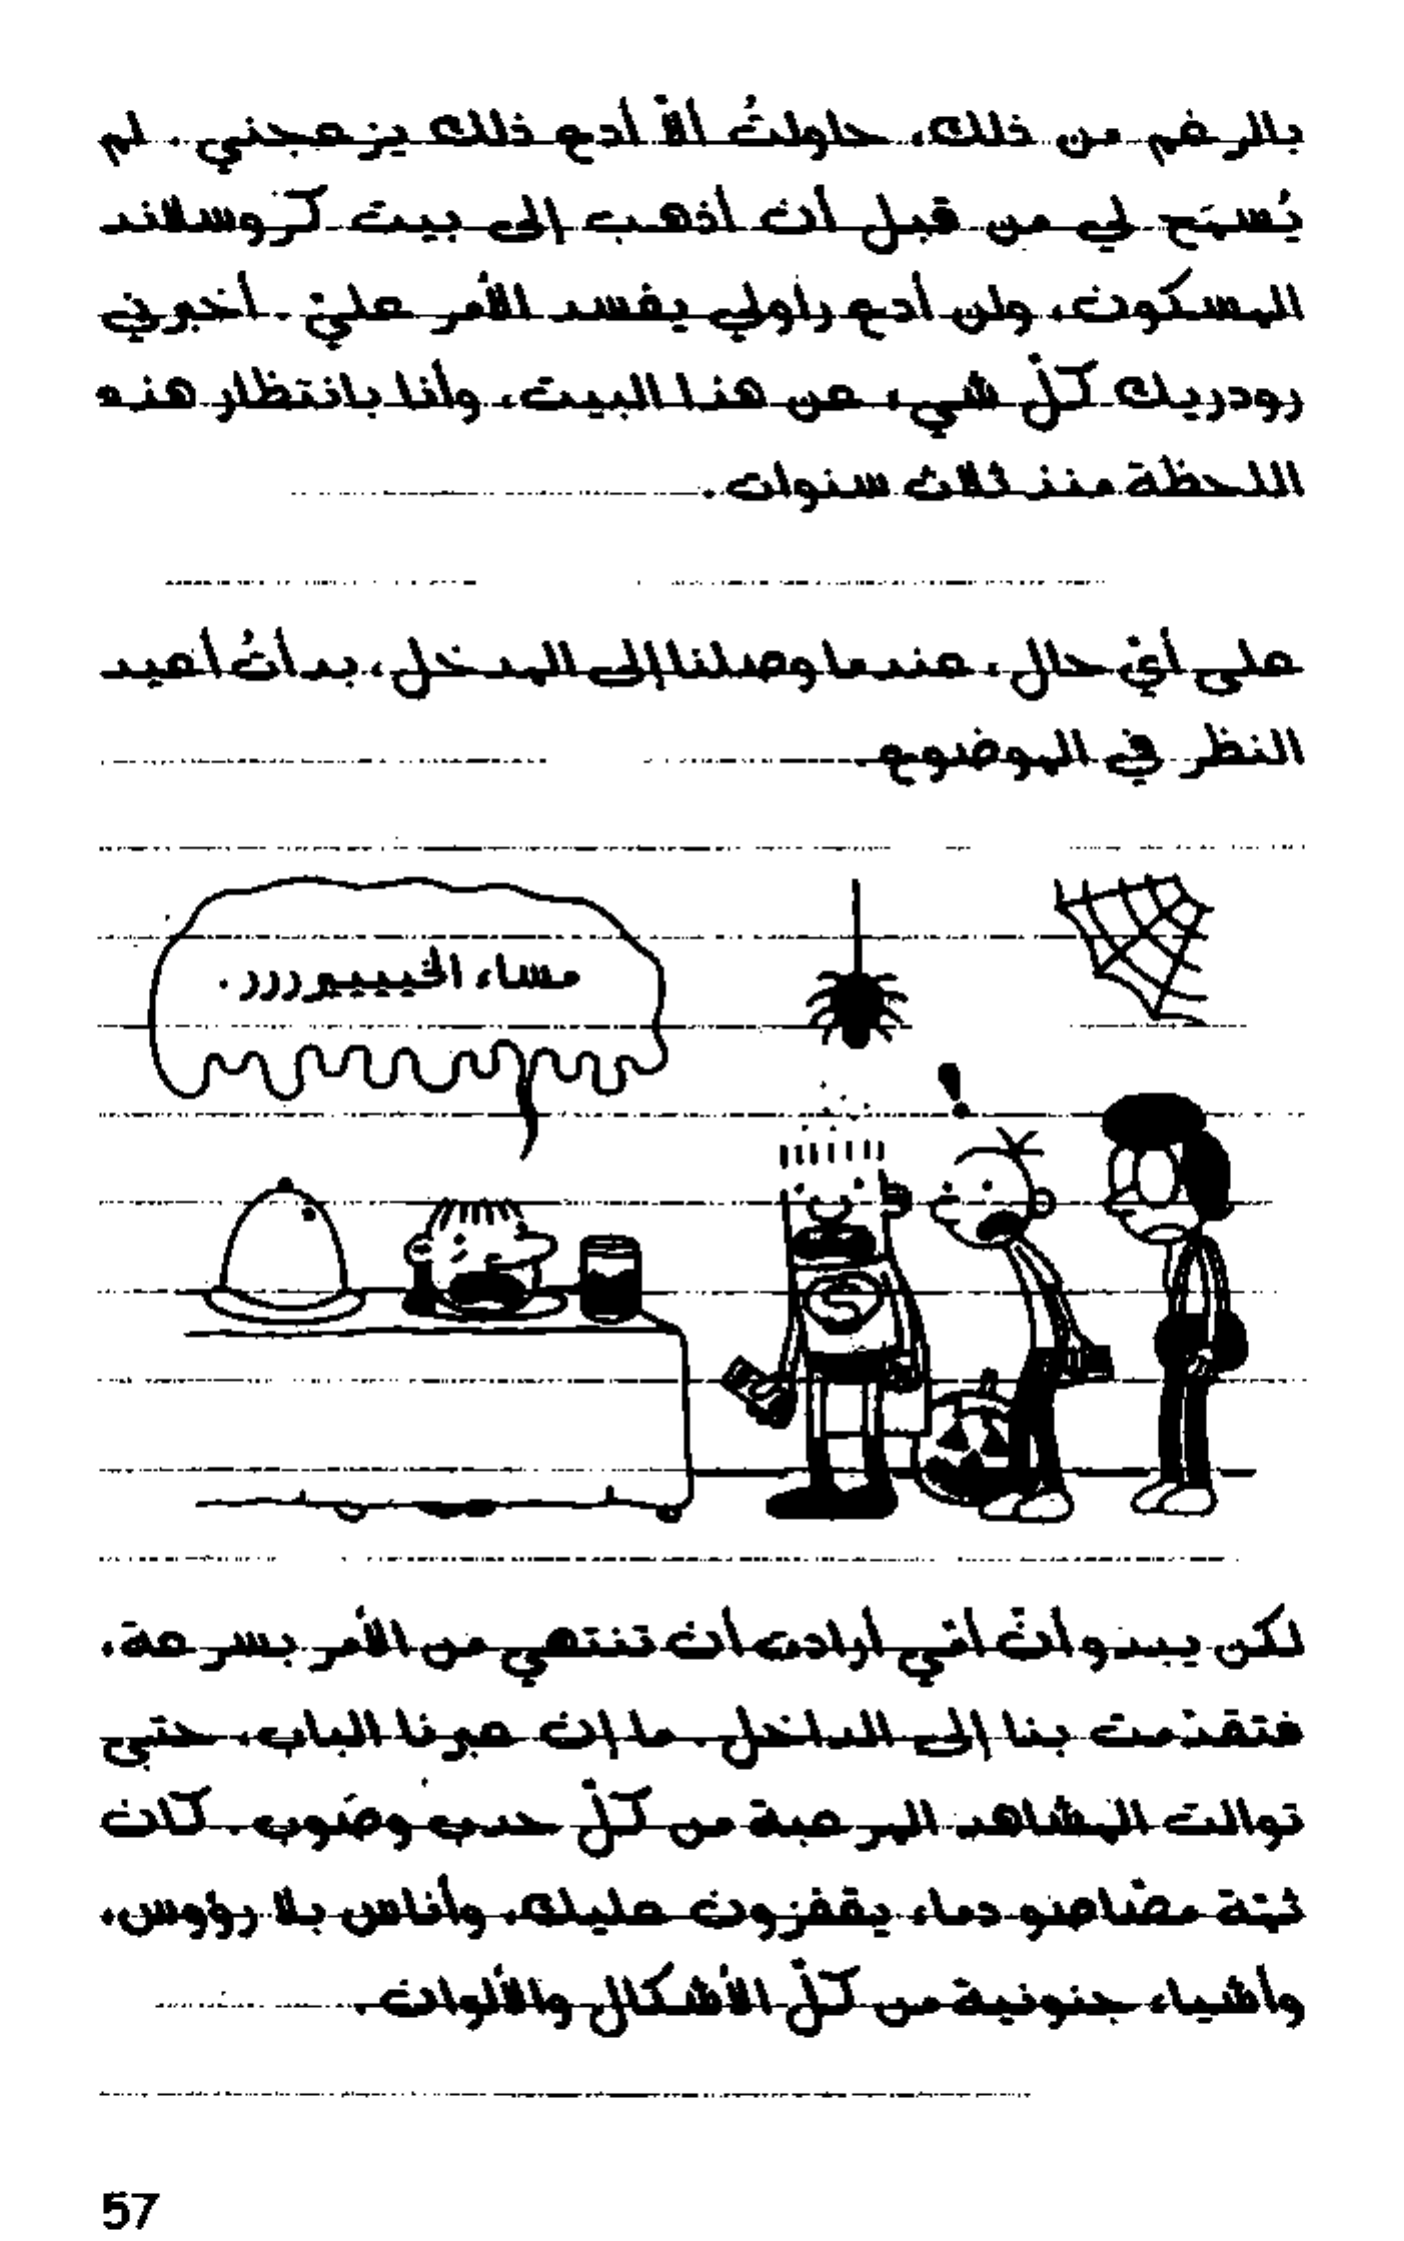 بالرغم من ذلك، حاولتُ ألاّ أدع ذلك يزعجني. لم
يُسمَح لي من قبل أن أذهب إلى بيت كروسلاند
المسكون، ولن أدع راولي يفسد الأمر عليّ. أخبرني
رودريك كلّ شيء عن هذا البيت، وأنا بانتظار هذه
اللحظة منذ ثلاث سنوات.
على أيّ حال، عندما وصلنا إلى المدخل، بدأتُ أعيد
النظر في الموضوع.
مساء الخييييرررر.
لكن يبدو أنّ أمّي أرادت أن تنتهي من الأمر بسرعة،
فتقدّمت بنا إلى الداخل. ما إن عبرنا الباب، حتى
توالت المشاهد المرعبة من كلّ حدب وصَوب. كان
ثمّة مصّاصو دماء يقفزون عليك، وأناس بلا رؤوس،
وأشياء جنونية من كلّ الأشكال والألوان.
57